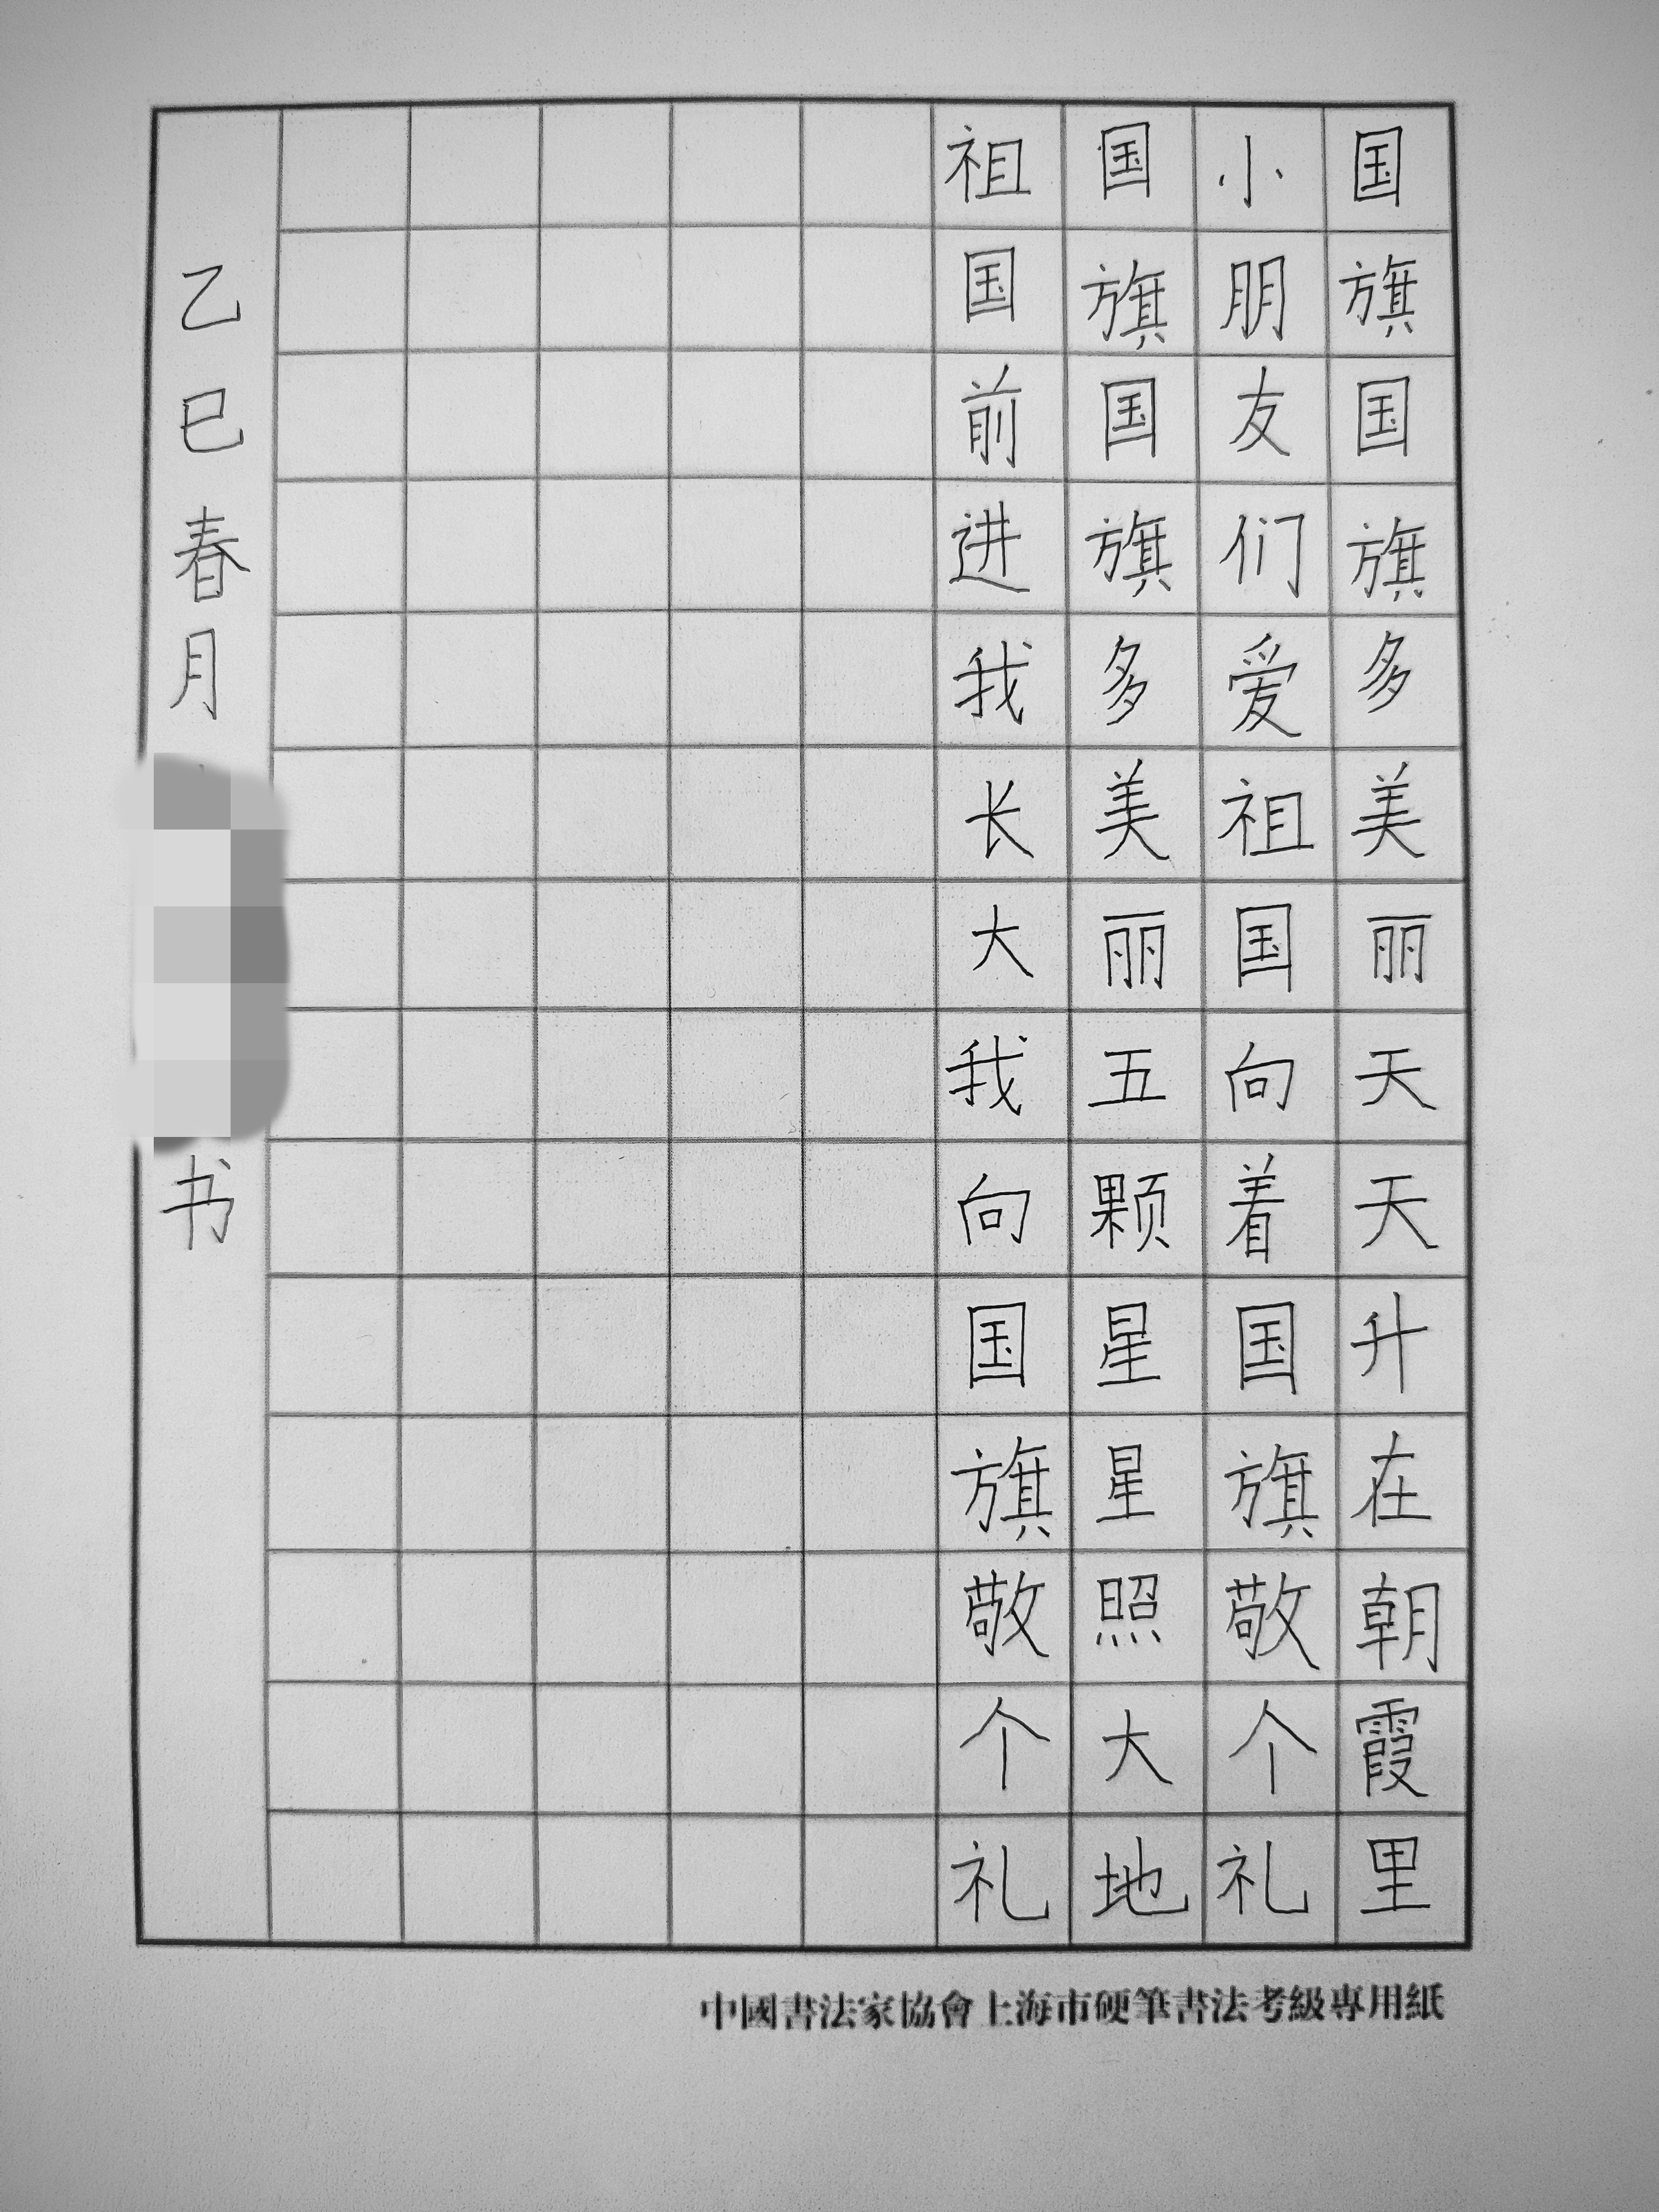 国旗国旗多美丽天天升在朝霞里
小朋友们爱祖国向着国旗敬个礼
国旗国旗多美丽五颗星星照大地
祖国前进我长大我向国旗敬个礼
乙巳春月
书
中國書法家協會上海市硬筆書法考級專用紙